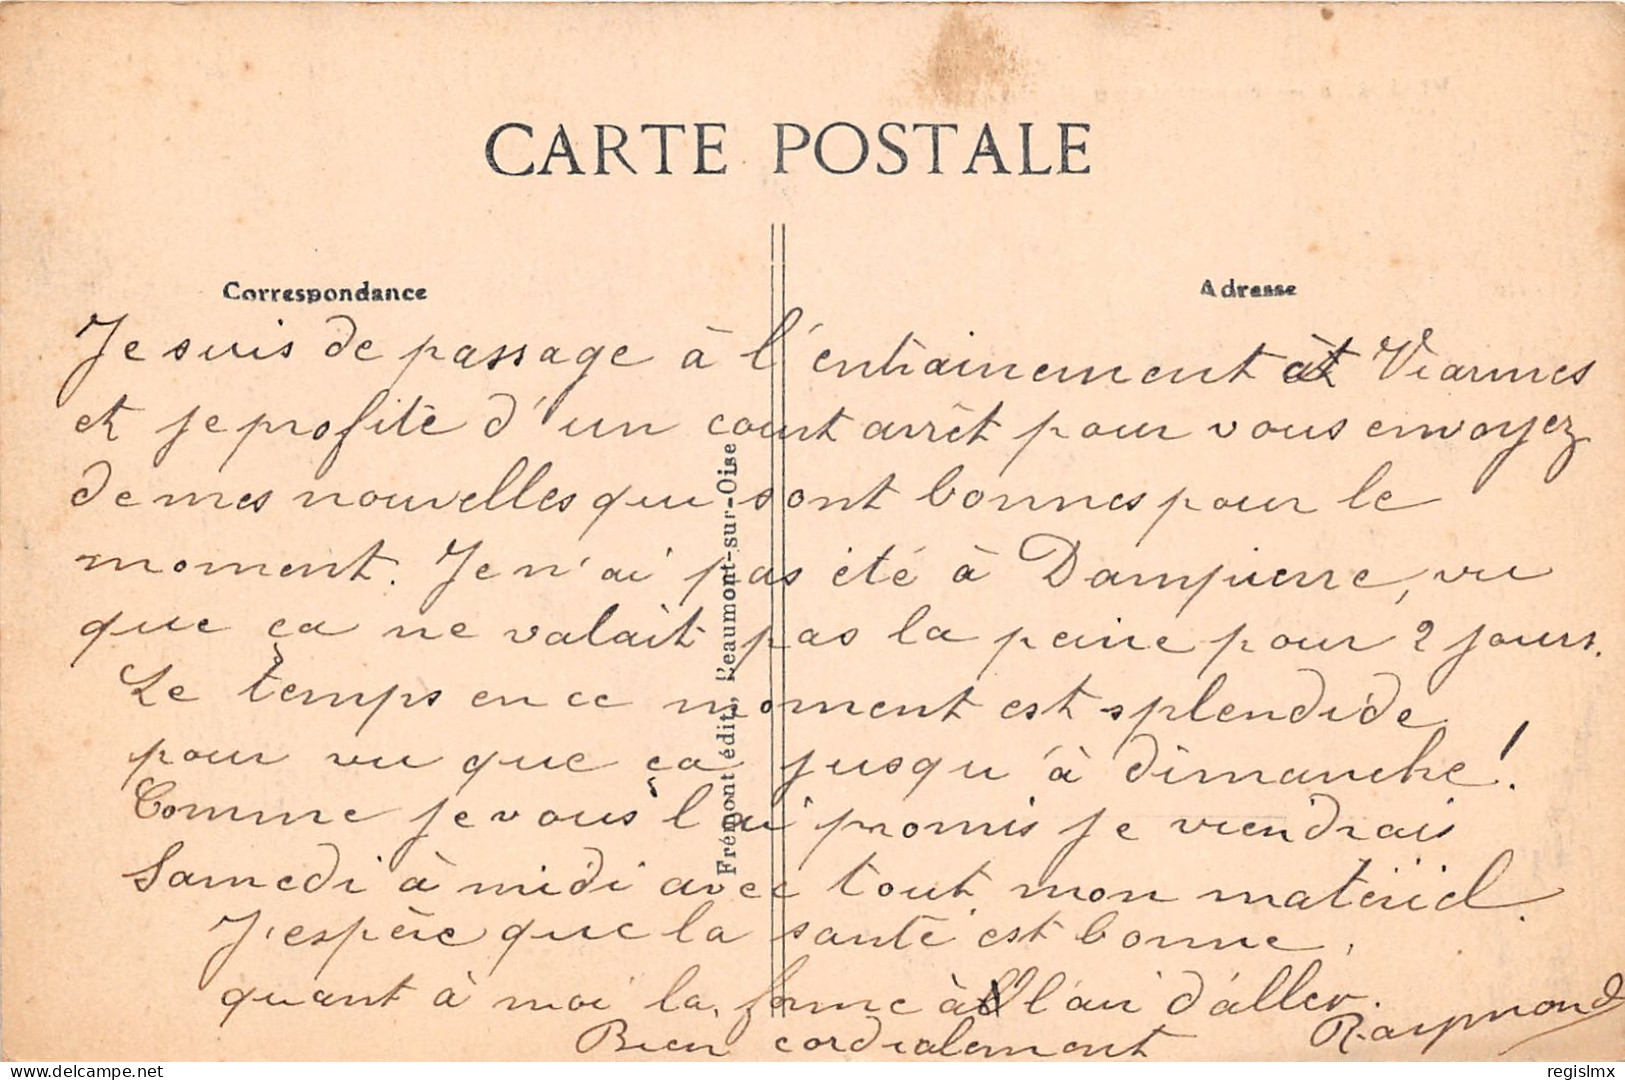 CARTE POSTALE
Correspondance
Adresse
Je suis de passage à l'entrainement à Viarmes
et je profite d'un court arrêt pour vous envoyez
de mes nouvelles qui sont bonnes pour le
moment. Je n'ai pas été à Dampierre, vu
que ça ne valait pas la peine pour 2 jours.
Le temps en ce moment est splendide
pour vu que ça jusqu'à dimanche !
Comme je vous l'ai promis je viendrais
Samedi à midi avec tout mon matériel.
J'espère que la santé est bonne,
quant à moi la forme à l'air d'aller.
Bien cordialement Raymond
Frémont édit., Beaumont-sur-Oise
delcampe.net
regislmx